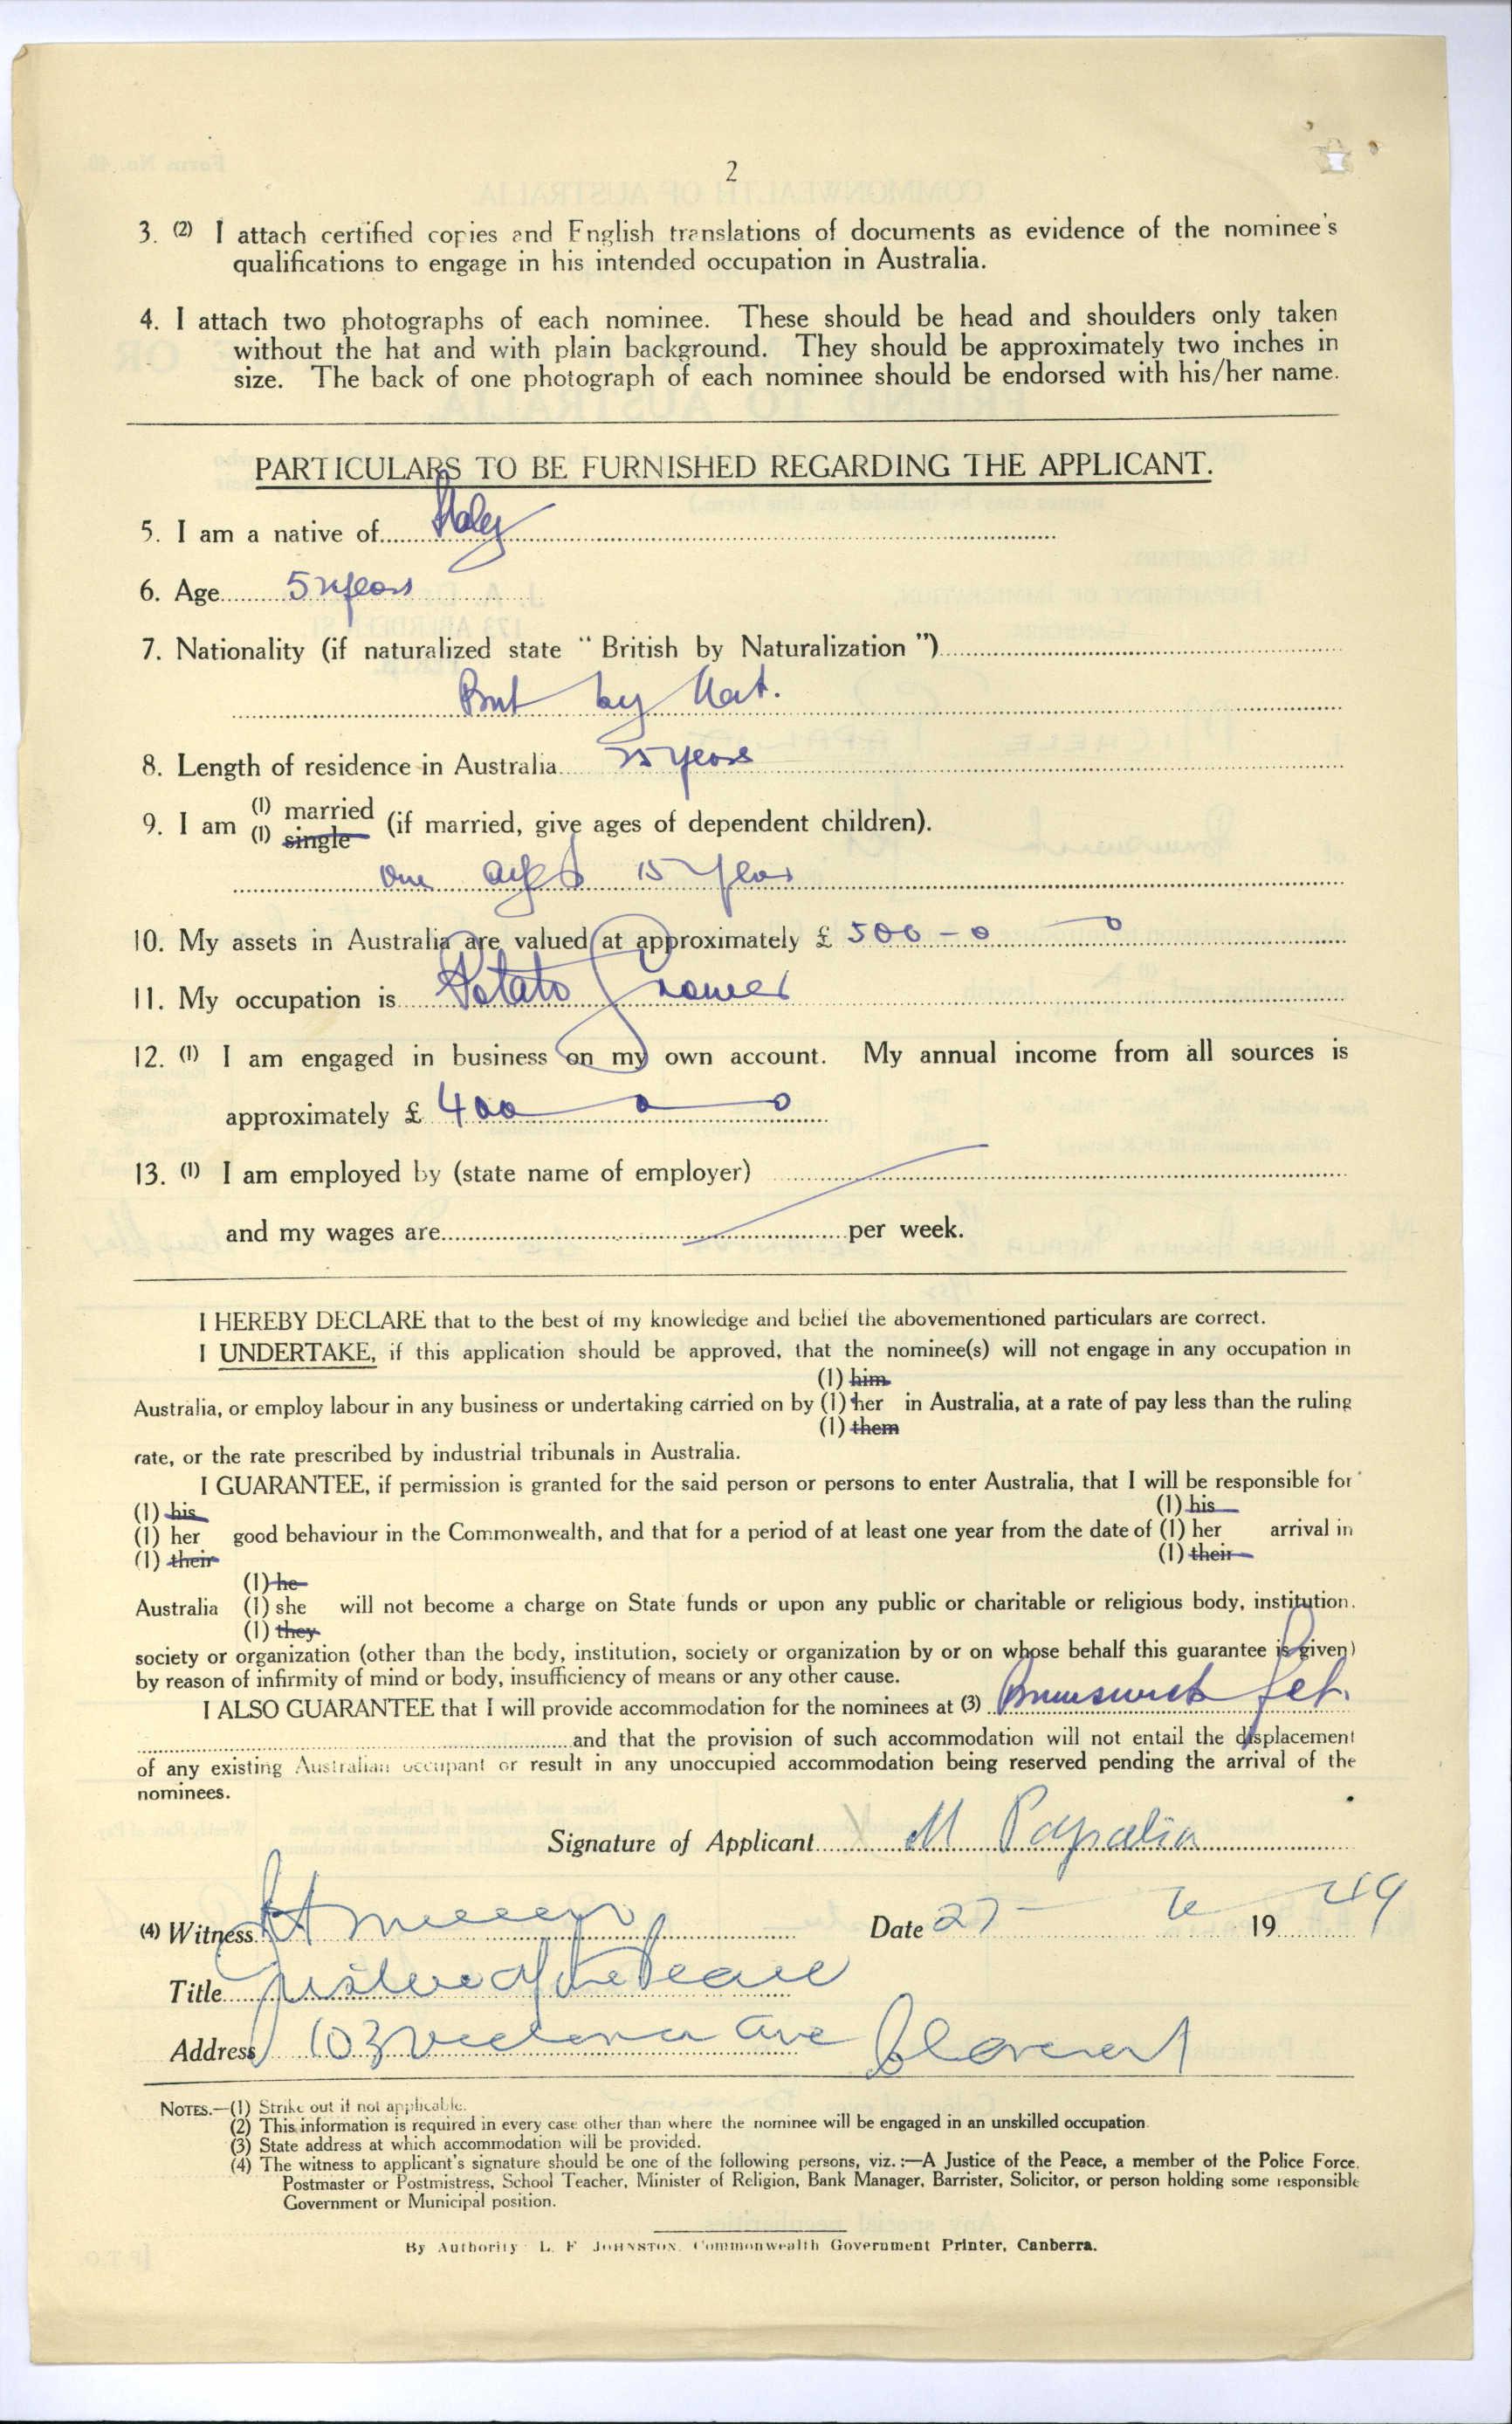 2
3. (2) I attach certified copies and English translations of documents as evidence of the nominee's
qualifications to engage in his intended occupation in Australia.
4. I attach two photographs of each nominee. These should be head and shoulders only taken
without the hat and with plain background. They should be approximately two inches in
size. The back of one photograph of each nominee should be endorsed with his/her name.
PARTICULARS TO BE FURNISHED REGARDING THE APPLICANT.
5. I am a native of Italy
6. Age years
7. Nationality (if naturalized state "British by Naturalization")
Brit by Nat.
8. Length of residence in Australia 25 years
9. I am (1) married
(1) single (if married, give ages of dependent children).
One aged 15 years
10. My assets in Australia are valued at approximately £ 500 - 0 0
11. My occupation is Potato Grower
12. (1) I am engaged in business on my own account. My annual income from all sources is
approximately £ 400 0 0
13. (1) I am employed by (state name of employer)
and my wages are per week.
I HEREBY DECLARE that to the best of my knowledge and belief the abovementioned particulars are correct.
I UNDERTAKE, if this application should be approved, that the nominee(s) will not engage in any occupation in
(1) him
Australia, or employ labour in any business or undertaking carried on by (1) her in Australia, at a rate of pay less than the ruling
(1) them
rate, or the rate prescribed by industrial tribunals in Australia.
I GUARANTEE, if permission is granted for the said person or persons to enter Australia, that I will be responsible for
(1) his (1) his
(1) her good behaviour in the Commonwealth, and that for a period of at least one year from the date of (1) her arrival in
(1) their (1) their
(1) he
Australia (1) she will not become a charge on State funds or upon any public or charitable or religious body, institution.
(1) they
society or organization (other than the body, institution, society or organization by or on whose behalf this guarantee is given)
by reason of infirmity of mind or body, insufficiency of means or any other cause.
I ALSO GUARANTEE that I will provide accommodation for the nominees at (3) Brunswick Jct.
and that the provision of such accommodation will not entail the displacement
of any existing Australian occupant or result in any unoccupied accommodation being reserved pending the arrival of the
nominees.
Signature of Applicant X M Papalia
(4) Witness Date 27 - 19 49
Title Justice of the Peace
Address 103 Victoria Ave Claremont
NOTES.—(1) Strike out if not applicable.
(2) This information is required in every case other than where the nominee will be engaged in an unskilled occupation.
(3) State address at which accommodation will be provided.
(4) The witness to applicant's signature should be one of the following persons, viz.:—A Justice of the Peace, a member of the Police Force,
Postmaster or Postmistress, School Teacher, Minister of Religion, Bank Manager, Barrister, Solicitor, or person holding some responsible
Government or Municipal position.
By Authority L. F. JOHNSTON, Commonwealth Government Printer, Canberra.